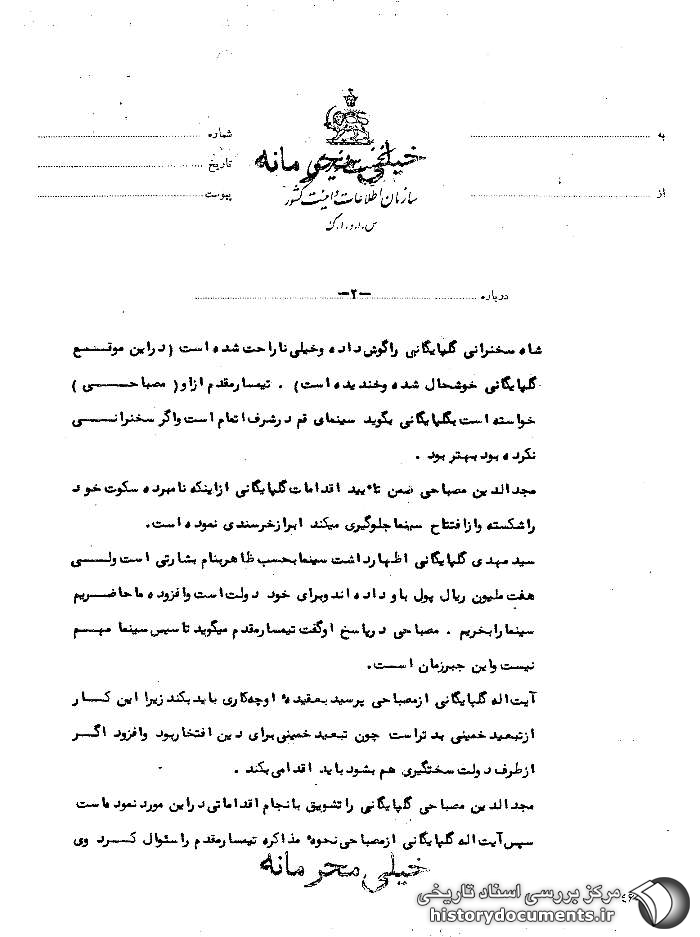 خیلی محرمانه
سازمان اطلاعات و امنیت کشور
س.ا.و.ا.ک
به
شماره
تاریخ
از
پیوست
درباره
-۲-
شاه سخنرانی گلپایگانی راگوش داده وخیلی ناراحت شده است (دراین موقع
گلپایگانی خوشحال شده وخندیده است) . تیمسارمقدم ازاو( مصباحی )
خواسته است بگلپایگانی بگوید سینمای قم درشرف اتمام است واگر سخنرانی
نکرده بود بهتر بود .
مجدالدین مصباحی ضمن تائید اقدامات گلپایگانی ازاینکه نامبرده سکوت خود
راشکسته وازافتتاح سینماجلوگیری میکند ابرازخرسندی نموده است.
سید مهدی گلپایگانی اظهارداشت سینمابحسب ظاهربنام بشارتی است ولی
هفت ملیون ریال پول باو داده اندوبرای خود دولت است وافزوده ماحاضریم
سینمارابخریم . مصباحی درپاسخ اوگفت تیمسارمقدم میگوید تاسیس سینما مهم
نیست واین جبرزمان است.
آیت اله گلپایگانی ازمصباحی پرسید بعقیده او چه کاری باید بکند زیرا این کار
ازتبعید خمینی بدتراست چون تبعید خمینی برای دین افتخاربود وافزود اگر
ازطرف دولت سختگیری هم بشود باید اقدامی بکند .
مجدالدین مصباحی گلپایگانی راتشویق بانجام اقداماتی دراین مورد نموده است
سپس آیت اله گلپایگانی ازمصباحی نحوه مذاکره تیمسارمقدم راسئوال کرد وی
خیلی محرمانه
مرکز بررسی اسناد تاریخی
historydocuments.ir